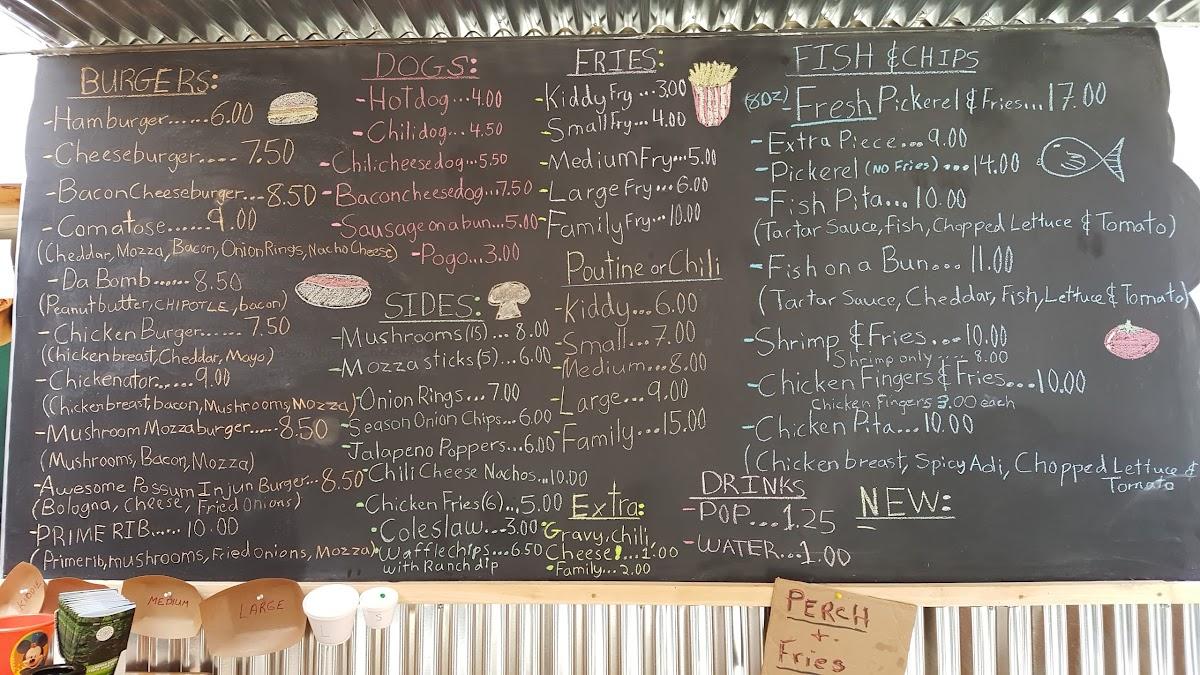 BURGERS:
-Hamburger......6.00
-Cheeseburger..... 7.50
-Bacon Cheeseburger...8.50
-Comatose.....9.00
(Cheddar, Mozza, Bacon, Onion Rings, Nacho Cheese)
-Da Bomb...... 8.50
(Peanut butter, CHIPOTLE, bacon)
-Chicken Burger....... 7.50
(Chicken breast, Cheddar, Mayo)
-Chickenator......9.00
(Chicken breast, bacon, Mushrooms, Mozza)
-Mushroom Mozzaburger......8.50
(Mushrooms, Bacon, Mozza)
-Awesome Possum Injun Burger...8.50
(Bologna, Cheese, Fried Onions)
-PRIME RIB..... 10.00
(Prime rib, mushrooms, Fried onions, Mozza)
DOGS:
-Hotdog...4.00
-Chilidog...4.50
-Chilicheesedog...5.50
-Baconcheesedog...7.50
-Sausage on a bun...5.00
-Pogo...3.00
SIDES:
-Mushrooms (15)... 8.00
-Mozza sticks (5)...6.00
-Onion Rings...7.00
-Season Onion Chips...6.00
-Jalapeno Poppers...6.00
-Chili Cheese Nachos...10.00
•Chicken Fries (6)...5.00
•Coleslaw...3.00
•Wafflechips...6.50
with Ranch dip
FRIES:
-Kiddy Fry...3.00
-Small Fry...4.00
-Medium Fry...5.00
-Large Fry...6.00
-Family Fry...10.00
Poutine or Chili
-Kiddy...6.00
-Small...7.00
-Medium...8.00
-Large...9.00
-Family...15.00
Extra:
•Gravy, chili,
Cheese!...1.00
•Family...2.00
FISH & CHIPS
(8oz)-Fresh Pickerel & Fries...17.00
-Extra Piece...9.00
-Pickerel (NO Fries)...14.00
-Fish Pita...10.00
(Tartar Sauce, fish, Chopped Lettuce & Tomato)
-Fish on a Bun... 11.00
(Tartar Sauce, Cheddar, Fish, Lettuce & Tomato)
-Shrimp & Fries...10.00
Shrimp only.... 8.00
-Chicken Fingers & Fries...10.00
Chicken Fingers 3.00 each
-Chicken Pita...10.00
(Chicken breast, Spicy Adi, Chopped Lettuce &
Tomato
DRINKS
-POP...1.25
-WATER...1.00
NEW:
KIDDIE
MEDIUM
LARGE
L
S
PERCH
+
Fries